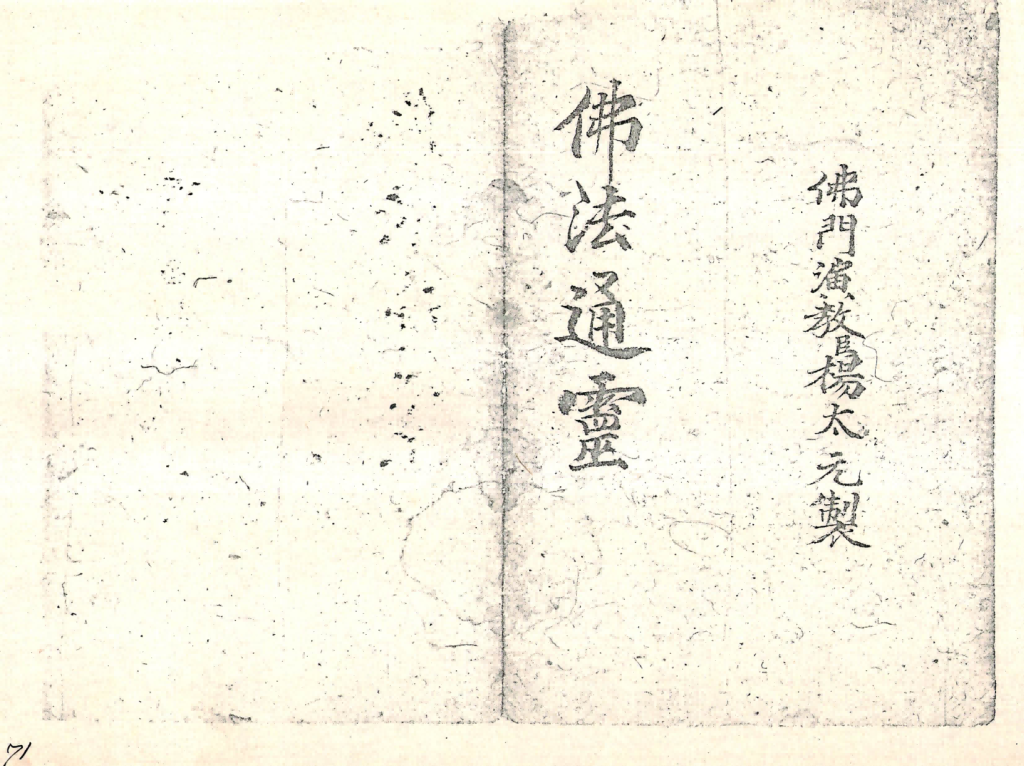 佛門演教長楊太元製
佛法通靈
71